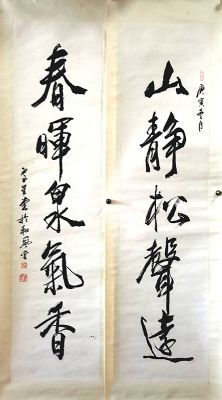 庚寅冬月
山静松聲遠
春暉泉氣香
於和風堂